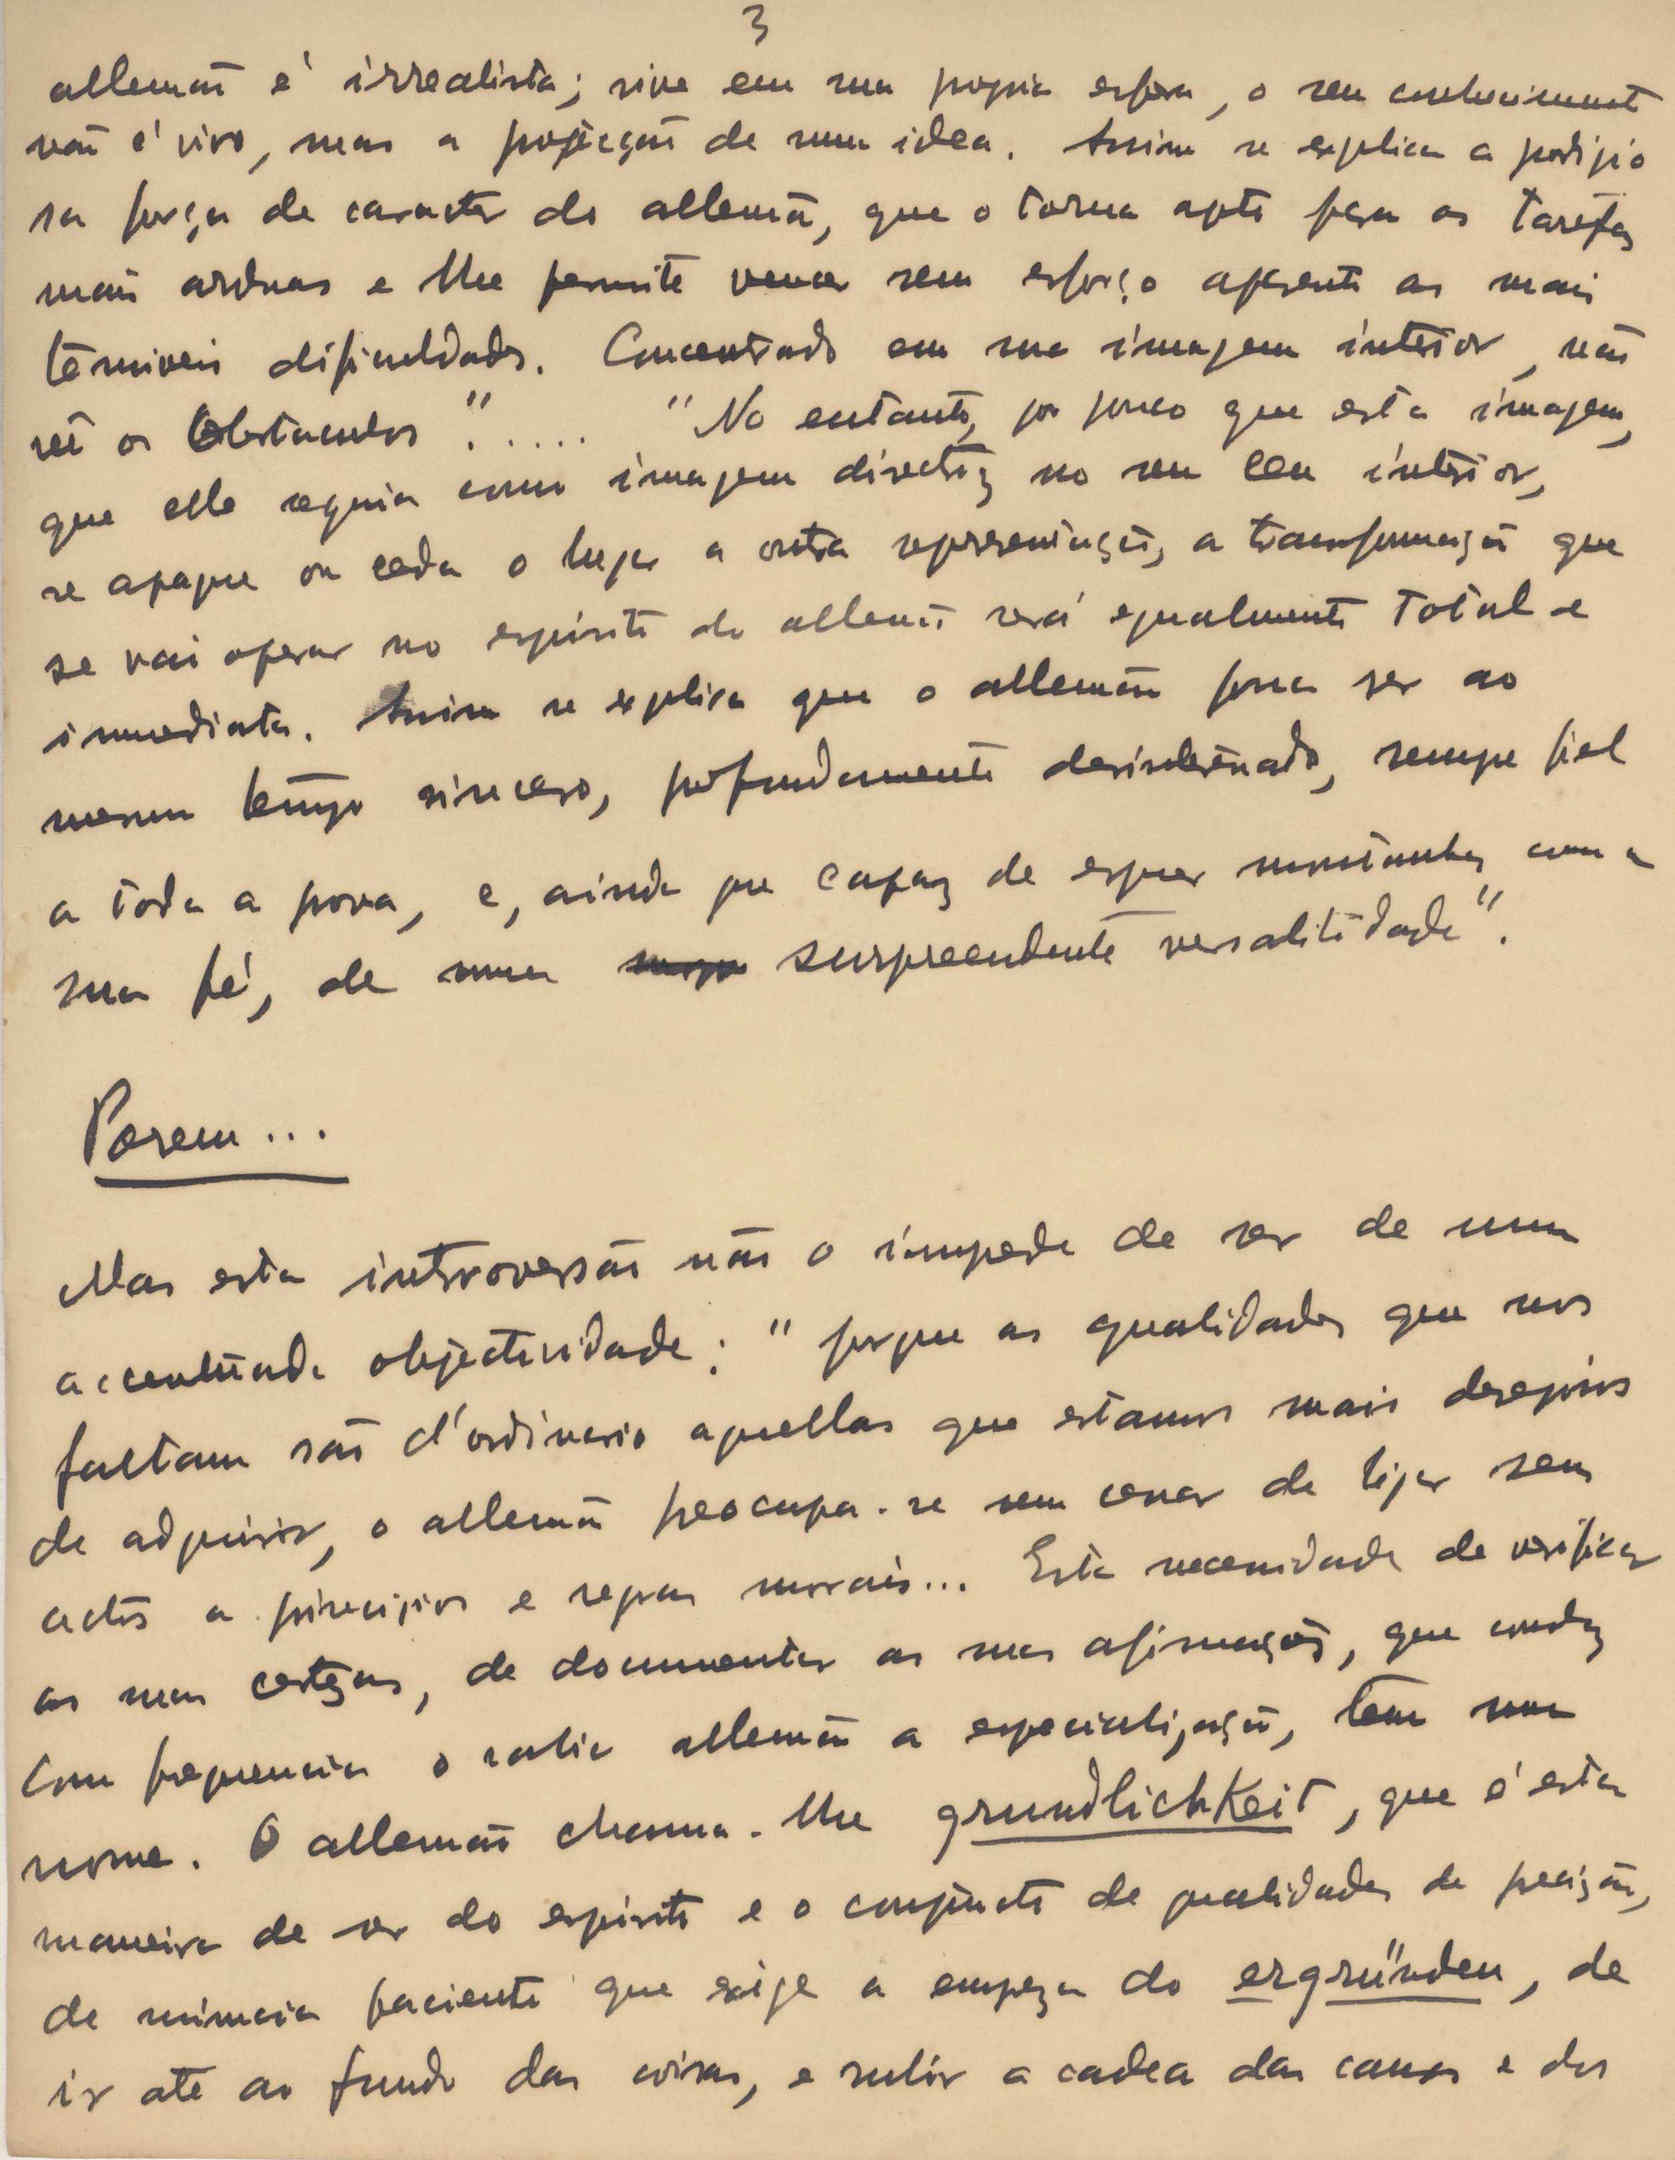 3
allemão é irrealista; vive em sua propria esfera, o seu conhecimento
não é vivo, mas a projecção de uma idea. Assim se explica a prodigio
sa força de caracter do allemão, que o torna apto para as tarefas
mais arduas e lhe permite vencer sem esforço apparente as mais
temiveis dificuldades. Concentrado em sua imagem interior, não
vê os Obstaculos". .... "No entanto, por pouco que esta imagem,
que elle seguia como imagem directriz no seu ceu interior,
se apague ou ceda o lugar a outra representação, a transformação que
se vai operar no espirito do allemão será egualmente total e
immediata. Assim se explica que o allemão possa ser ao
mesmo tempo sincero, profundamente desinteressado, sempre fiel
a toda a prova, e, ainda que capaz de erguer montanhas com a
sua fé, de uma surpreendente versalitidade".
Porem...
Mas esta introversão não o impede de ser de uma
accentuada objectividade: "porque as qualidades que nos
faltam são d'ordinario aquellas que estamos mais desejosos
de adquirir, o allemão preocupa-se sem cessar de ligar seus
actos a principios e regras morais... Esta necessidade de verificar
as suas certezas, de documentar as suas afirmações, que conduz
com frequencia o sabio allemão a especialização, tem um
nome. O allemão chama-lhe grundlichkeit, que é esta
maneira de ser do espirito e o conjuncto de qualidades de precisão,
de minucia paciente que exige a empreza do ergründen, de
ir até ao fundo das coisas, e subir a cadea das causas e dos